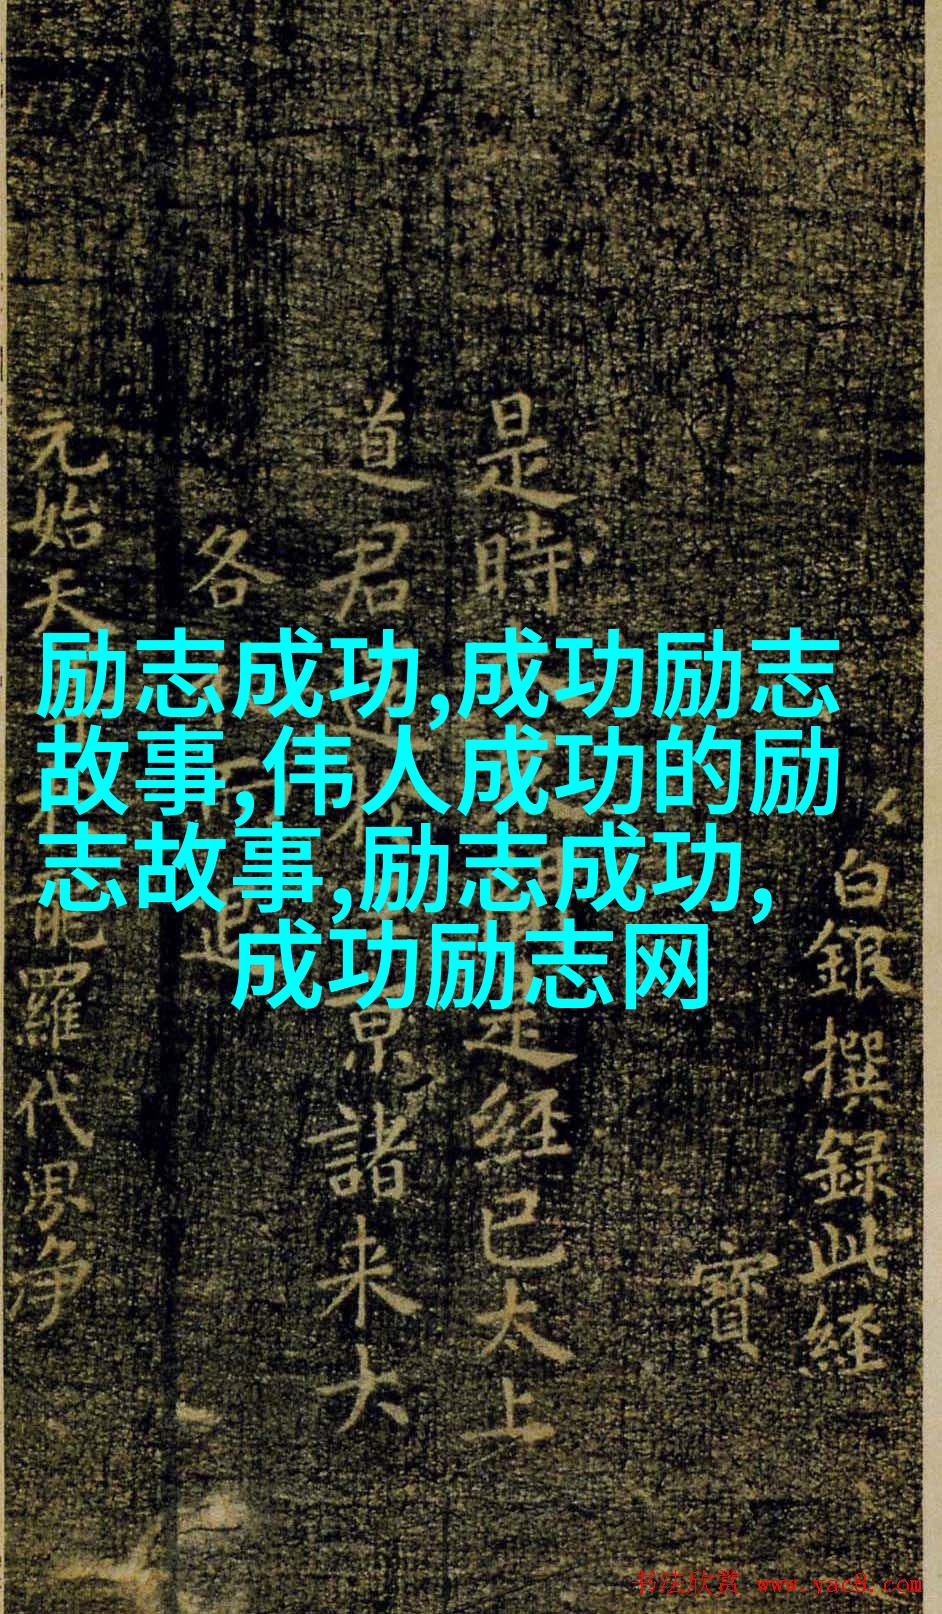 励志成功,成功励志
故事,伟人成功的励
志故事,励志成功,
成功励志网
白銀撰錄此經
寶
是時
是經已太上
道君
京諸来大
各
元始天
羅代界净
书法欣赏 www.yac8.com